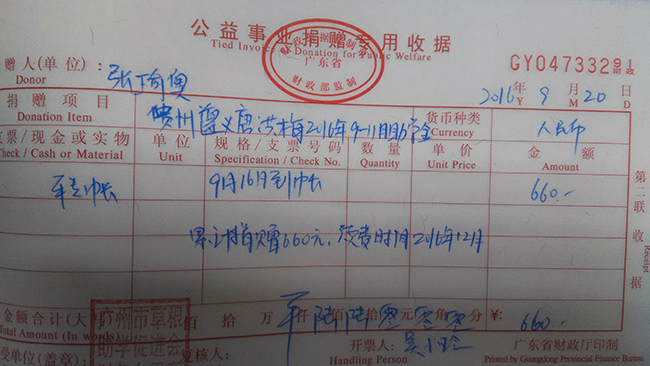 公益事业捐赠专用收据
Tied Invoice Donation for Public Welfare
广东省
财政部监制
GY04733291
赠人(单位):
Donor
2016年9月20日
Y M D
捐赠项目
Donation Item
贵州遵义唐洪梅2016年9-11月助学金
货币种类
Currency
人民币
票/现金或实物
Check / Cash or Material
单位
Unit
规格/支票号码
Specification / Check No.
数量
Quantity
单价
Unit Price
金额
Amount
9月16日到帐
660.-
累计捐赠660元, 续费时间2016年12月
第二联 收据
金额合计(大写)
Total Amount (In words)
佰拾万仟佰拾元角分
陆陆零零零
¥: 660.-
广州市草根
助学促进会
受单位(盖章):
复核人:
开票人:
Handling Person
广东省财政厅印制
Printed by Guangdong Provincial Finance Bureau